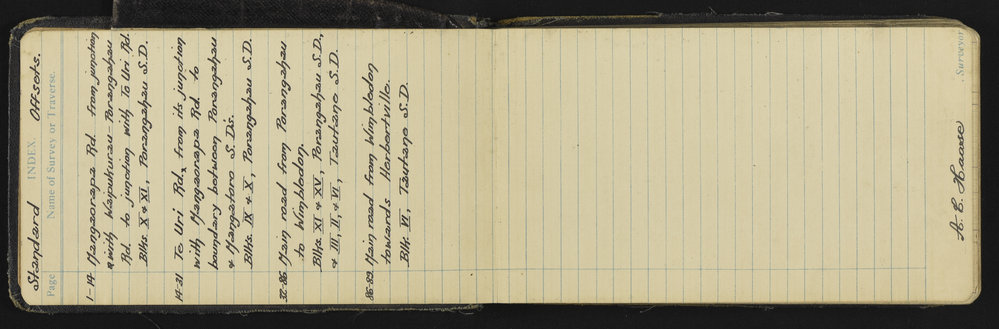 Standard INDEX. Offsets.
Page Name of Survey or Traverse.
1-14 Mangaorapa Rd. from junction
with Waipukurau-Porangahau
Rd. to junction with Te Uri Rd.
Blks. X & XI, Porangahau S.D.
14-31 Te Uri Rd. from its junction
with Mangaorapa Rd. to
boundary between Porangahau
& Mangatoro S.Ds.
Blks. IX & X, Porangahau S.D.
32-86 Main road from Porangahau
to Wimbledon.
Blks. XI & XV, Porangahau S.D.,
& III, II, & VI, Tautane S.D.
86-89 Main road from Wimbledon
towards Herbertville.
Blk. VI, Tautane S.D.
A. E. Haase
Surveyor